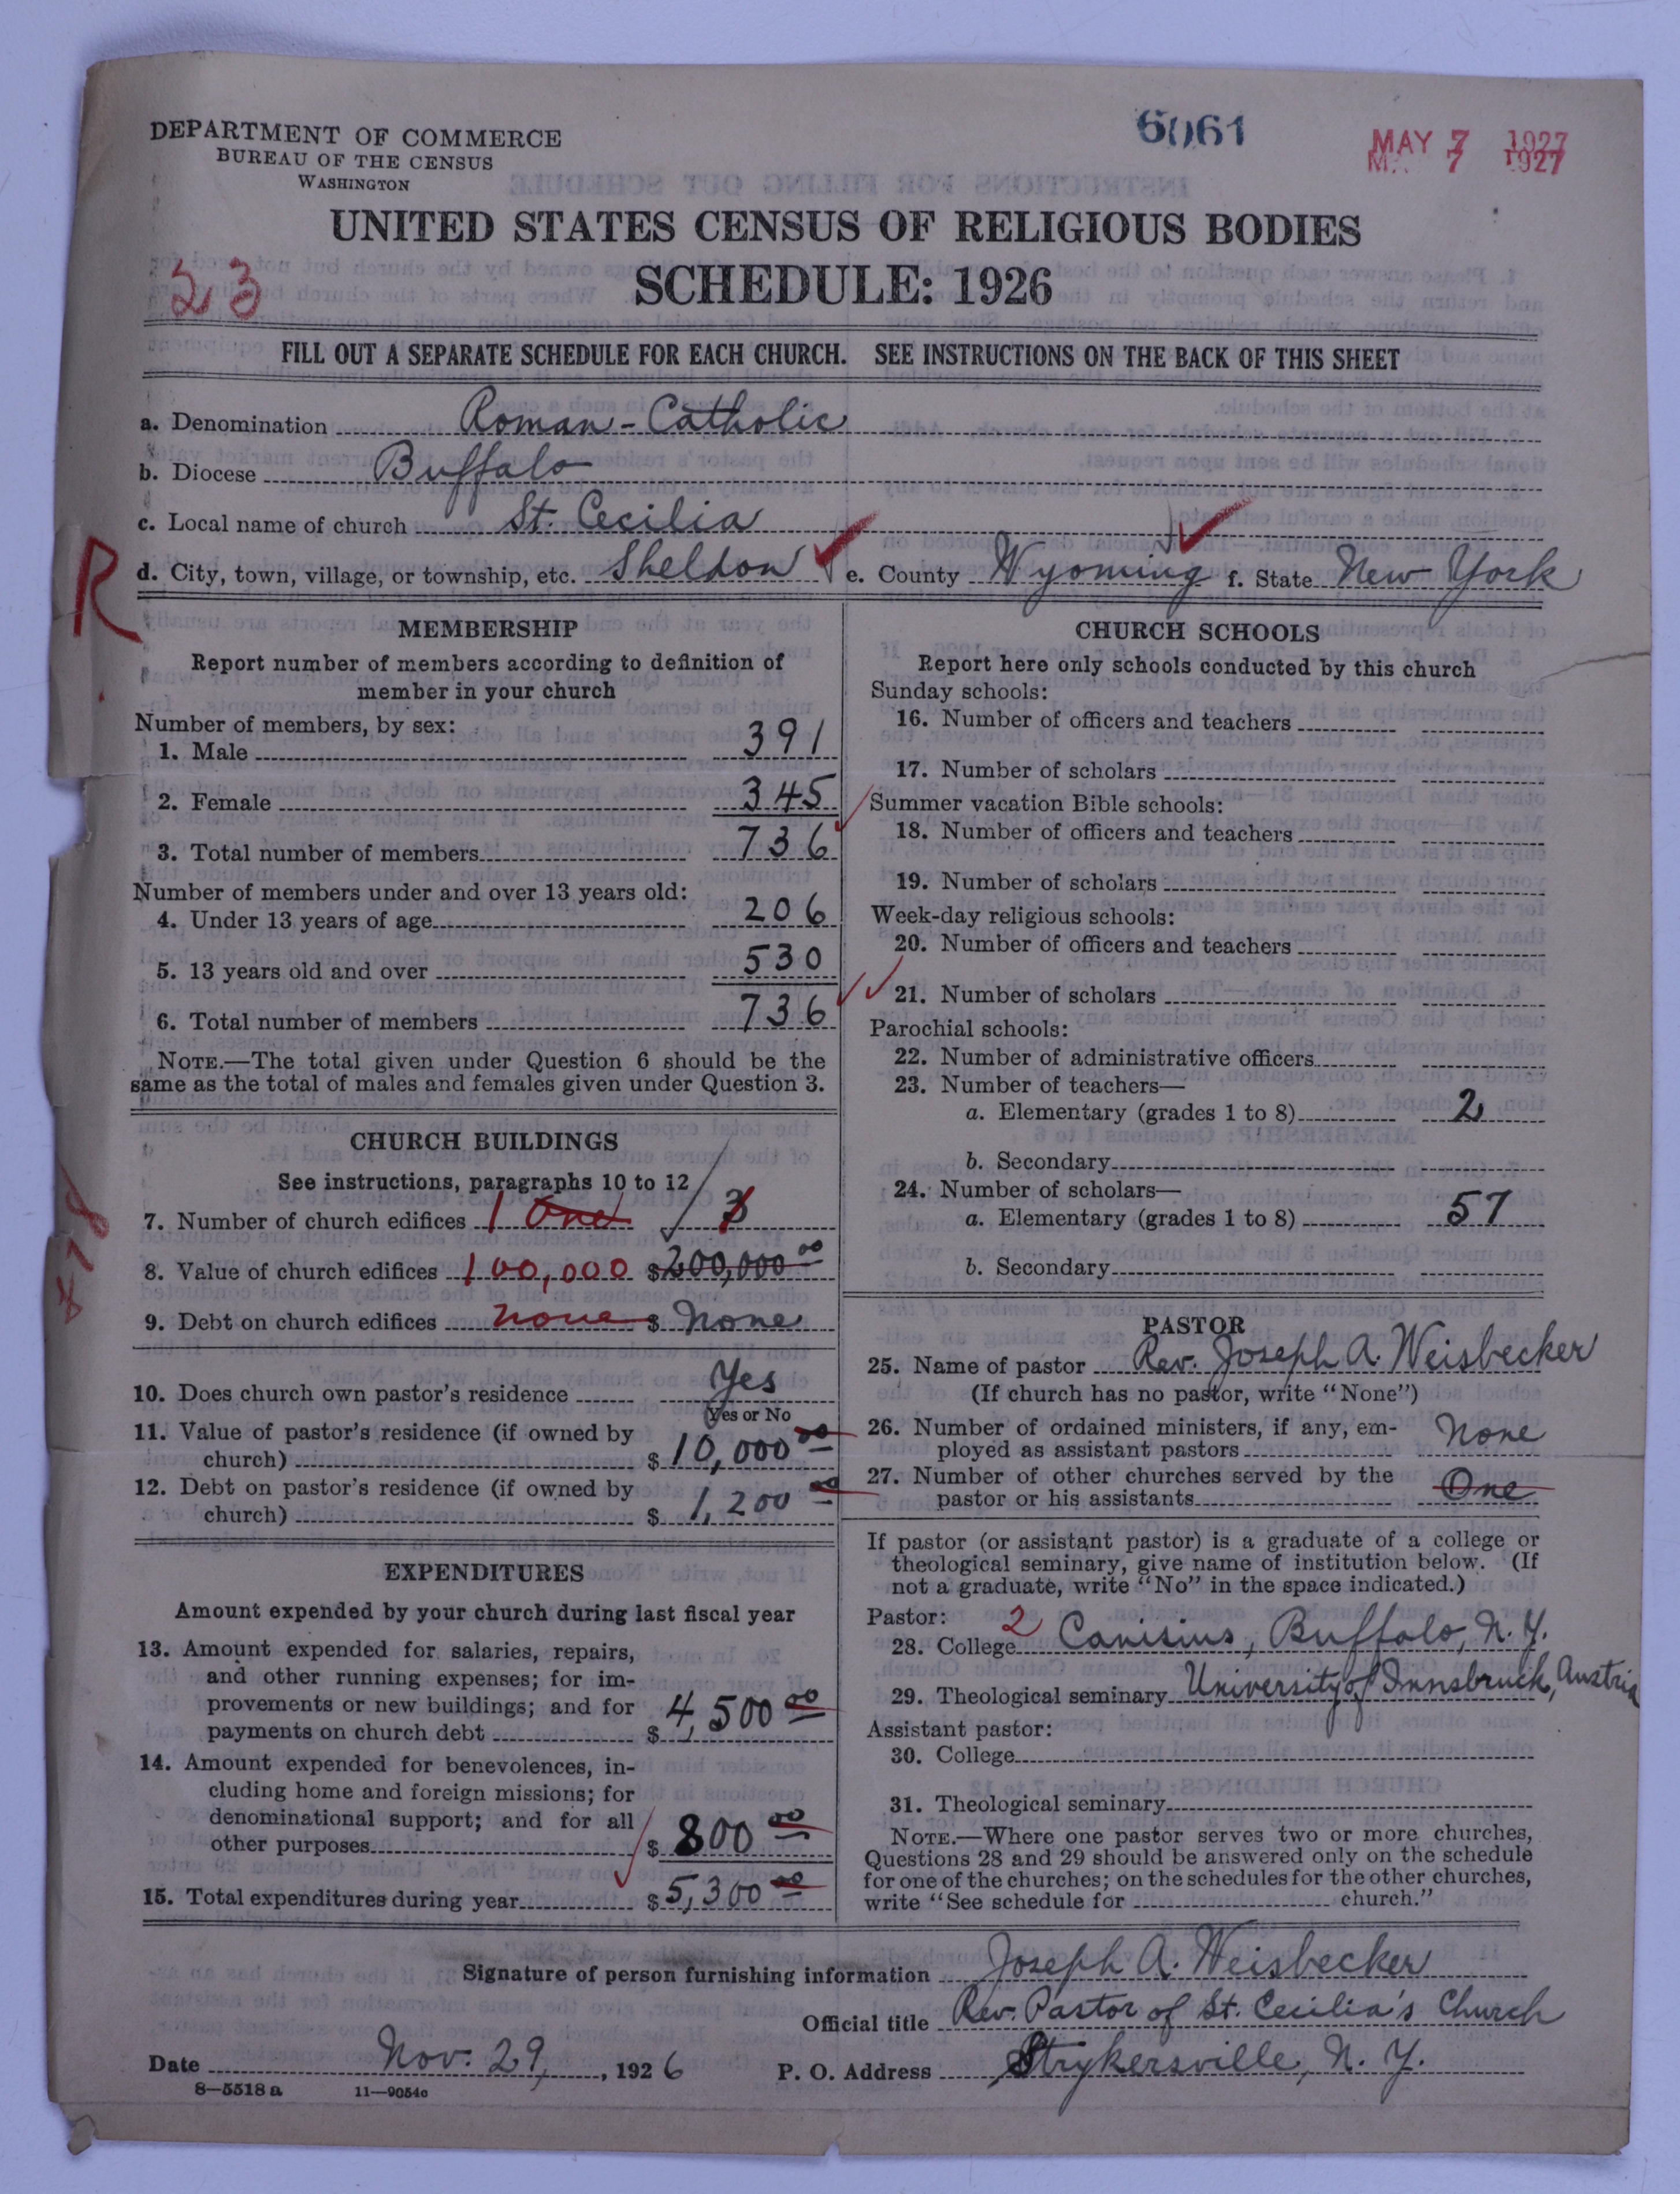 DEPARTMENT OF COMMERCE
BUREAU OF THE CENSUS
WASHINGTON
6061
MAY 7 1927
7 1927
UNITED STATES CENSUS OF RELIGIOUS BODIES
SCHEDULE: 1926
23
FILL OUT A SEPARATE SCHEDULE FOR EACH CHURCH. SEE INSTRUCTIONS ON THE BACK OF THIS SHEET
a. Denomination Roman-Catholic
b. Diocese Buffalo
c. Local name of church St. Cecilia
R
d. City, town, village, or township, etc. Sheldon e. County Wyoming f. State New York
MEMBERSHIP
Report number of members according to definition of
member in your church
Number of members, by sex:
1. Male 391
2. Female 345
3. Total number of members 736
Number of members under and over 13 years old:
4. Under 13 years of age 206
5. 13 years old and over 530
6. Total number of members 736
NOTE.—The total given under Question 6 should be the
same as the total of males and females given under Question 3.
CHURCH BUILDINGS
See instructions, paragraphs 10 to 12
7. Number of church edifices 1 One 3
8. Value of church edifices 100,000 $200,000 00
9. Debt on church edifices none $ None
10. Does church own pastor's residence Yes
Yes or No
11. Value of pastor's residence (if owned by
church) $ 10,000 00
12. Debt on pastor's residence (if owned by
church) $ 1,200 00
EXPENDITURES
Amount expended by your church during last fiscal year
13. Amount expended for salaries, repairs,
and other running expenses; for im-
provements or new buildings; and for
payments on church debt $ 4,500 00
14. Amount expended for benevolences, in-
cluding home and foreign missions; for
denominational support; and for all
other purposes $ 800 00
15. Total expenditures during year $ 5,300 00
CHURCH SCHOOLS
Report here only schools conducted by this church
Sunday schools:
16. Number of officers and teachers
17. Number of scholars
Summer vacation Bible schools:
18. Number of officers and teachers
19. Number of scholars
Week-day religious schools:
20. Number of officers and teachers
21. Number of scholars
Parochial schools:
22. Number of administrative officers
23. Number of teachers—
a. Elementary (grades 1 to 8) 2
b. Secondary
24. Number of scholars—
a. Elementary (grades 1 to 8) 57
b. Secondary
PASTOR
25. Name of pastor Rev. Joseph A. Weisbecker
(If church has no pastor, write "None")
26. Number of ordained ministers, if any, em-
ployed as assistant pastors None
27. Number of other churches served by the
pastor or his assistants One
If pastor (or assistant pastor) is a graduate of a college or
theological seminary, give name of institution below. (If
not a graduate, write "No" in the space indicated.)
Pastor: 2
28. College Canisius, Buffalo, N. Y.
29. Theological seminary University of Innsbruck, Austria
Assistant pastor:
30. College
31. Theological seminary
NOTE.—Where one pastor serves two or more churches,
Questions 28 and 29 should be answered only on the schedule
for one of the churches; on the schedules for the other churches,
write "See schedule for church."
Signature of person furnishing information Joseph A. Weisbecker
Official title Rev. Pastor of St. Cecilia's Church
Date Nov. 29, 1926 P. O. Address Strykersville, N. Y.
8—5518 a 11—9054c